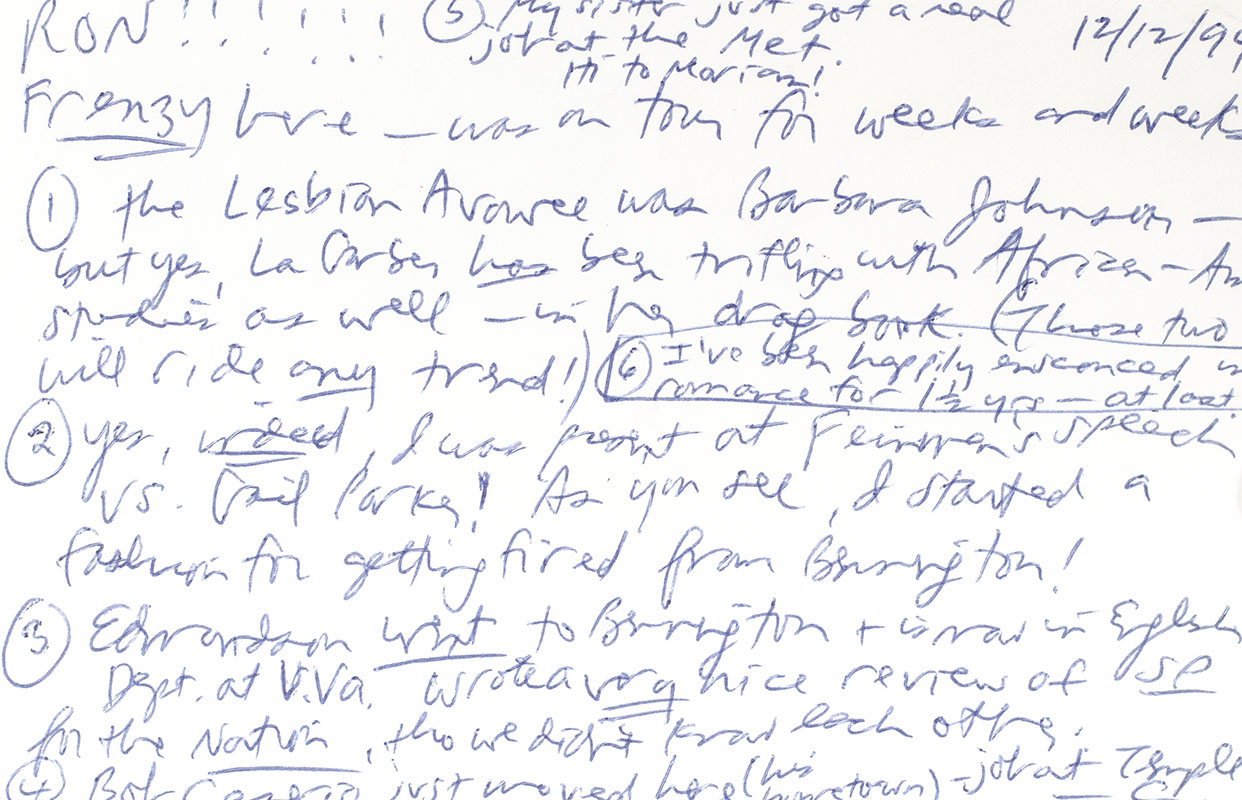 RON!!!!!!
⑤ My sister just got a real
job at the Met.
Hi to Marian!
12/12/94
Frenzy here – was on tour for weeks and weeks
① the Lesbian Avowee was Barbara Johnson –
but yes, La Garber has been trifling with African-Am
studies as well – in her drag book. (Those two
will ride any trend!)
⑥ I've been happily ensconced in
romance for 1½ yrs – at last
② yes, indeed, I was present at Feinman's speech
vs. Gail Parker! As you see, I started a
fashion for getting fired from Bennington!
③ Edmundson went to Bennington + is now in English
Dept. at U.Va. wrote a very nice review of SP
for the Nation, tho we didn't know each other.
④ Bob just moved here (his
hometown) – job at Temple